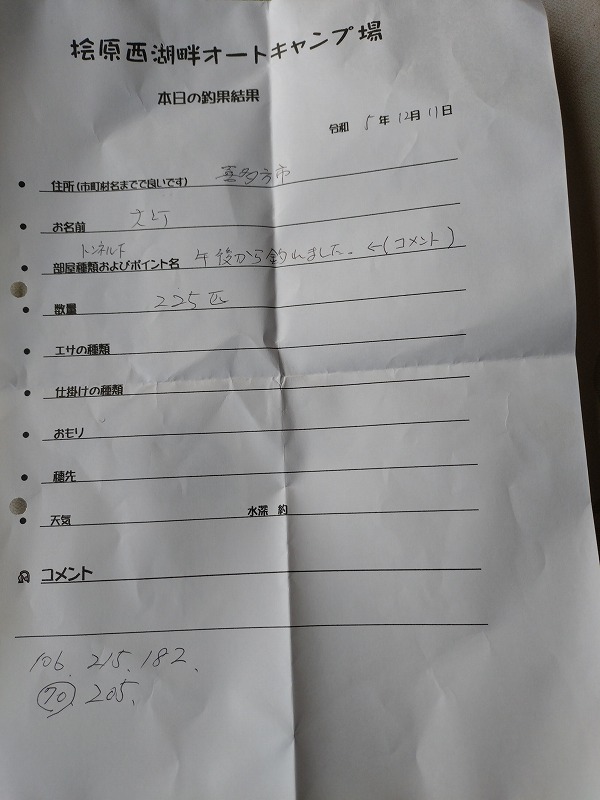 桧原西湖畔オートキャンプ場
本日の釣果結果
令和 5 年 12 月 11 日
住所(市町村名までで良いです) 喜多方市
お名前
トンネル下
部屋種類およびポイント名 午後から釣れました。←(コメント)
数量 225匹
エサの種類
仕掛けの種類
おもり
穂先
天気 水深 約
コメント
106. 215. 182.
70. 205.